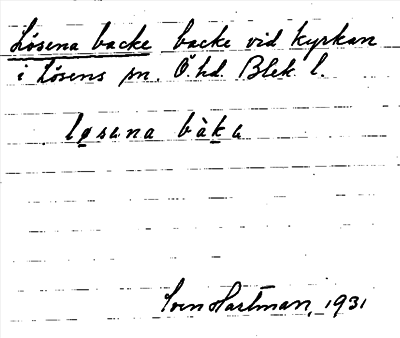 Lösena backe backe vid kyrkan
i Lösens sn. Ö. hd. Blek. l.
løsena bàka
Sven Hartman, 1931